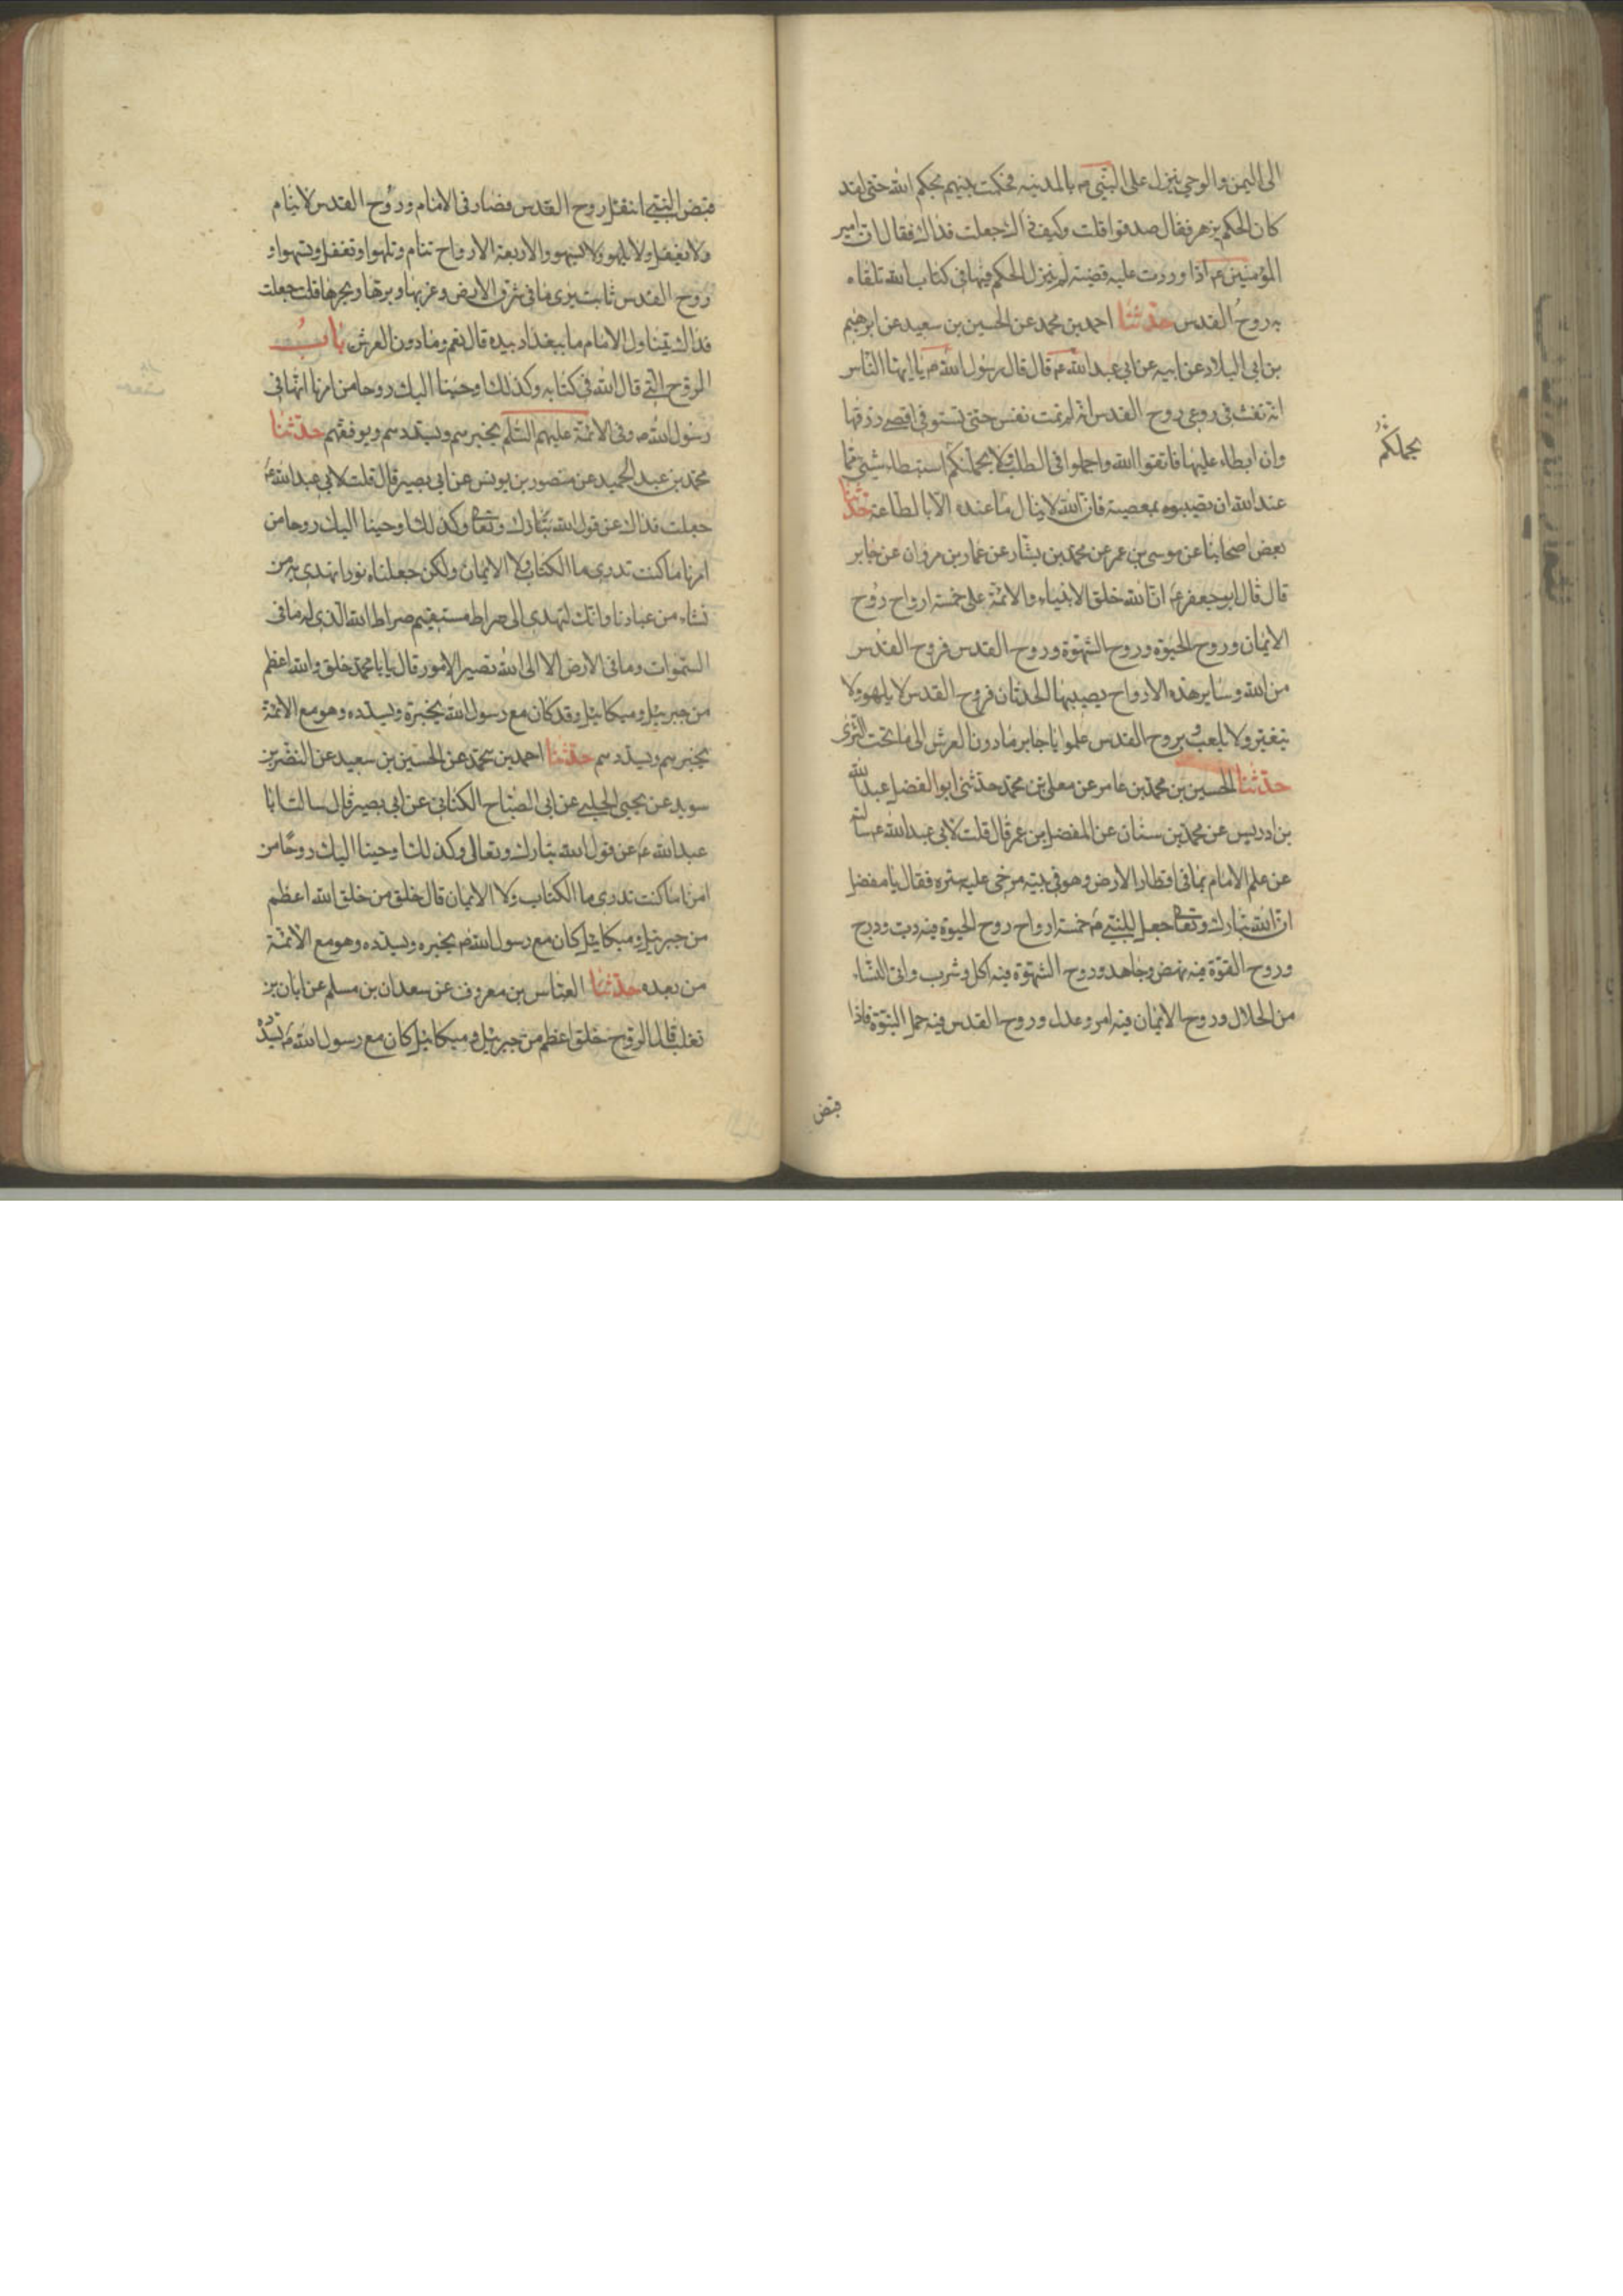 الى اليمن والوحي ينزل على النبي ص بالمدينه فحكمت بينهم بحكم الله حتى لقد
كان الحكم يزهر فقال صدقوا قلت وكيف ذاك جعلت فداك فقال ان امير
المؤمنين ع اذا وردت عليه قضية لم ينزل الحكم فيها في كتاب الله تلقاه
به روح القدس حدثنا احمد بن محمد عن الحسين بن سعيد عن ابرهيم
بن ابي البلاد عن ابيه عن ابي عبد الله ع قال قال رسول الله ص يا ايها الناس
انه نفث في روعي روح القدس انه لم تمت نفس حتى تستوفي اقصى رزقها
وان ابطاء عليها فاتقوا الله واجملوا في الطلب ولا يحملنكم استبطاء شيئ مما
عند الله ان تصيبوه بمعصية فان الله لا ينال ما عنده الا بالطاعة حدثنا
بعض اصحابنا عن موسى بن عمر عن محمد بن بشار عن عمار بن مروان عن جابر
قال قال ابو جعفر ع ان الله خلق الانبياء والائمة على خمسة ارواح روح
الايمان وروح الحيوة وروح الشهوة وروح القدس فروح القدس
من الله وساير هذه الارواح يصيبها الحدثان فروح القدس لا يلهو ولا
يتغير ولا يلعب وبروح القدس علموا يا جابر ما دون العرش الى ما تحت الثرى
حدثنا الحسين بن محمد بن عامر عن معلى بن محمد حدثني ابو الفضل عبد الله
بن ادريس عن محمد بن سنان عن المفضل بن عمر قال قلت لابي عبد الله ع سالته
عن علم الامام بما في اقطار الارض وهو في بيته مرخى عليه ستره فقال يا مفضل
ان الله تبارك وتعالى جعل للنبي ص خمسة ارواح روح الحيوة فيه دب ودرج
وروح القوة فيه نهض وجاهد وروح الشهوة فيه اكل وشرب واتى النساء
من الحلال وروح الايمان فيه امر وعدل وروح القدس فيه حمل النبوة فاذا
قبض
يحملنكم
قبض النبي انتقل روح القدس فصار في الامام وروح القدس لا ينام
ولا يغفل ولا يلهو ولا يسهو والاربعة الارواح تنام وتلهوا وتغفل وتسهوا و
روح القدس ثابت يرى ما في شرق الارض وغربها وبرها وبحرها قلت جعلت
فداك يتناول الامام ما ببغداد بيده قال نعم وما دون العرش باب
الروح التي قال الله في كتابه وكذلك اوحينا اليك روحا من امرنا انها في
رسول الله ص وفي الائمة عليهم السلم يخبرهم ويسددهم ويوفقهم حدثنا
محمد بن عبد الحميد عن منصور بن يونس عن ابي بصير قال قلت لابي عبد الله ع
جعلت فداك عن قول الله تبارك وتعالى وكذلك اوحينا اليك روحا من
امرنا ما كنت تدرى ما الكتاب ولا الايمان ولكن جعلناه نورا نهدى به من
نشاء من عبادنا وانك لتهدى الى صراط مستقيم صراط الله الذى له ما في
السموات وما في الارض الا الى الله تصير الامور قال يا با محمد خلق والله اعظم
من جبرئيل وميكائيل وقد كان مع رسول الله يخبره ويسدده وهو مع الائمة
يخبرهم ويسددهم حدثنا احمد بن محمد عن الحسين بن سعيد عن النضر بن
سويد عن يحيى الحلبي عن ابي الصباح الكناني عن ابي بصير قال سالت ابا
عبد الله ع عن قول الله تبارك وتعالى وكذلك اوحينا اليك روحا من
امرنا ما كنت تدرى ما الكتاب ولا الايمان قال خلق من خلق الله اعظم
من جبرئيل وميكائيل كان مع رسول الله ص يخبره ويسدده وهو مع الائمة
من بعده حدثنا العباس بن معروف عن سعدان بن مسلم عن ابان بن
تغلب قال الروح خلق اعظم من جبرئيل وميكائيل كان مع رسول الله ص يسدده